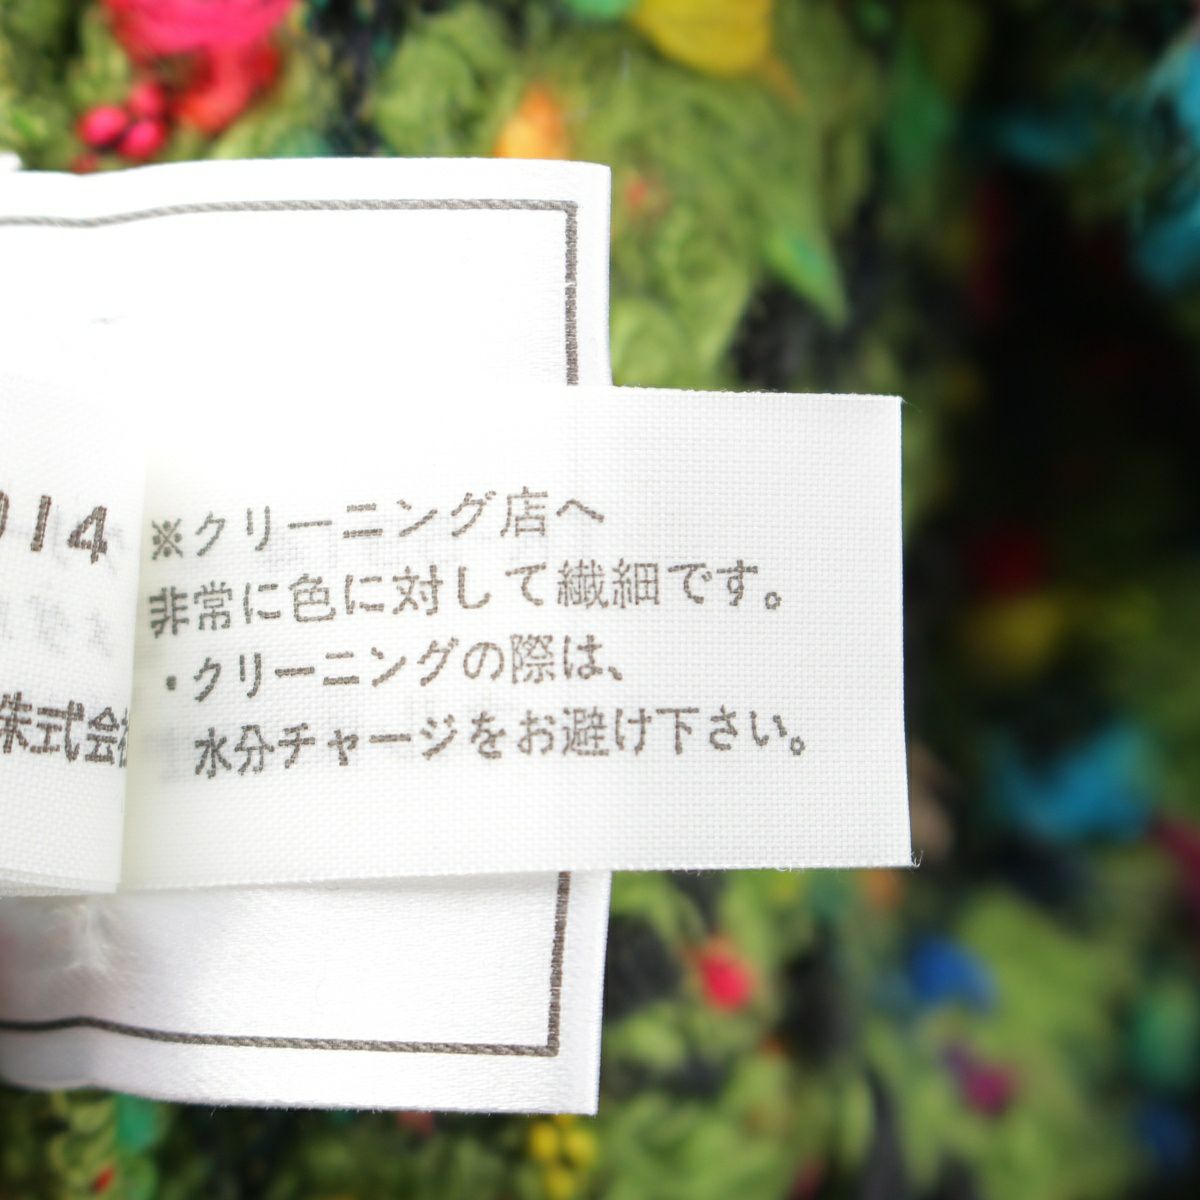 014
※クリーニング店へ
非常に色に対して繊細です。
・クリーニングの際は、
水分チャージをお避け下さい。
株式会